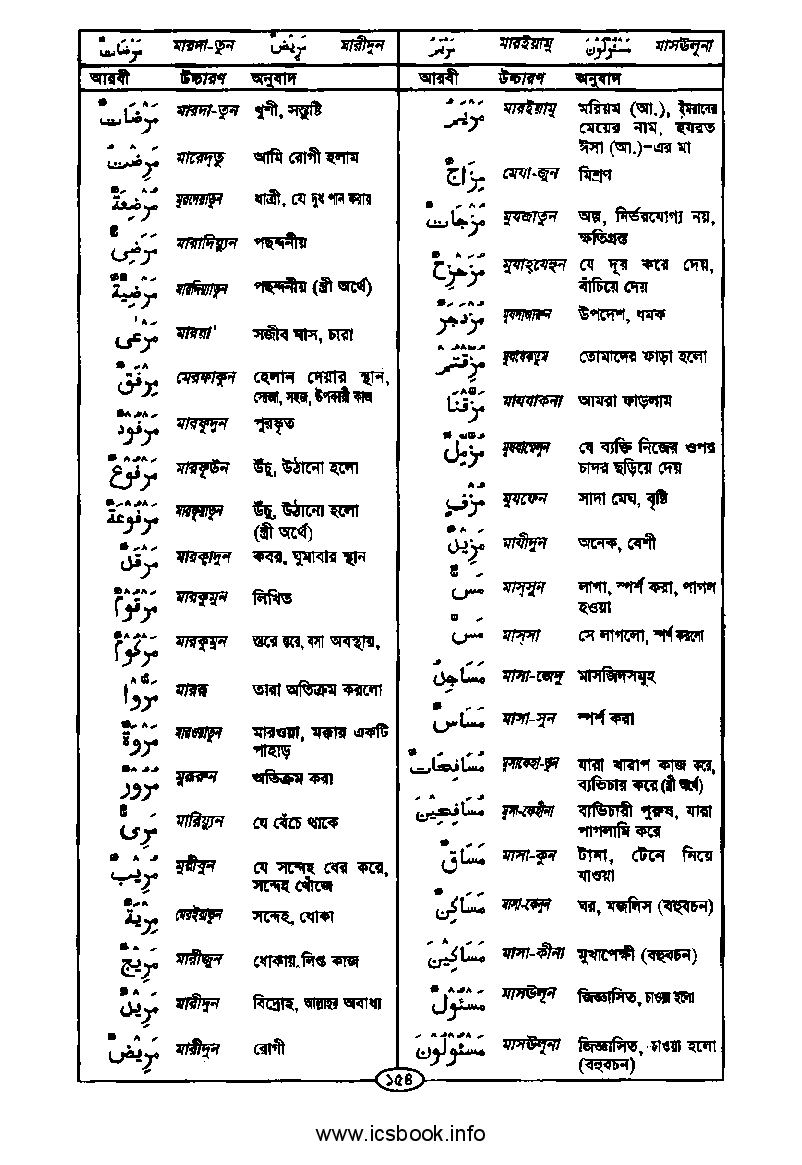 مَرْضَاتٌ মারদা-তুন مَرِيْضٌ মারীদুন
আরবী উচ্চারণ অনুবাদ
مَرْضَاتٌ মারদা-তুন খুশী, সন্তুষ্টি
مَرِضْتُ মারেদ্‌তু আমি রোগী হলাম
مُرْضِعَةٌ মুরদেয়াতুন ধাত্রী, যে দুধ পান করায়
مَرَضِىٌّ মারাদিয়্যুন পছন্দনীয়
مَرْضِيَةٌ মারদিয়্যাতুন পছন্দনীয় (স্ত্রী অর্থে)
مَرْعٰى মারয়া' সজীব ঘাস, চারা
مِرْفَقٌ মেরফাকুন হেলান দেয়ার স্থান,
সোজা, সহজ, উপকারী কাজ
مَرْفُوْدٌ মারফূদুন পুরস্কৃত
مَرْفُوْعٌ মারফূউন উঁচু, উঠানো হলো
مَرْفُوْعَةٌ মারফূয়াতুন উঁচু, উঠানো হলো
(স্ত্রী অর্থে)
مَرْقَدٌ মারক্বাদুন কবর, ঘুমাবার স্থান
مَرْقُوْمٌ মারকুমুন লিখিত
مَرْكُوْمٌ মারকুমুন স্তরে স্তরে, বসা অবস্থায়,
مَرُّوْا মাররূ তারা অতিক্রম করলো
مَرْوَةٌ মারওয়াতুন মারওয়া, মক্কার একটি
পাহাড়
مُرُوْرٌ মুরূরুন অতিক্রম করা
مَرِىٌّ মারিয়্যুন যে বেঁচে থাকে
مُرِيْبٌ মুরীবুন যে সন্দেহ বের করে,
সন্দেহ খোঁজে
مِرْيَةٌ মেরইয়াতুন সন্দেহ, ধোকা
مَرِيْجٌ মারীজুন ধোকায় লিপ্ত কাজ
مَرِيْدٌ মারীদুন বিদ্রোহ, আল্লাহর অবাধ্য
مَرِيْضٌ মারীদুন রোগী
مَرْيَمُ মারইয়ামু مَسْئُوْلُوْنَ মাসউলূনা
আরবী উচ্চারণ অনুবাদ
مَرْيَمُ মারইয়ামু মরিয়ম (আ.), ইমরানের
মেয়ের নাম, হযরত
ঈসা (আ.)-এর মা
مِزَاجٌ মেযা-জুন মিশ্রণ
مُزْجَاتٌ মুযজাতুন অল্প, নির্ভরযোগ্য নয়,
ক্ষতিগ্রস্ত
مُزَحْزِحٌ মুযাহ্‌যেহুন যে দূর করে দেয়,
বাঁচিয়ে দেয়
مُزْدَجَرٌ মুযদাজারুন উপদেশ, ধমক
مُزِّقْتُمْ মুযযেকতুম তোমাদের ফাড়া হলো
مَزَّقْنَا মাযযাকনা আমরা ফাড়লাম
مُزَّمِّلٌ মুযযাম্মেলুন যে ব্যক্তি নিজের ওপর
চাদর ছড়িয়ে দেয়
مُزْنٌ মুযনেন সাদা মেঘ, বৃষ্টি
مَزِيْدٌ মাযীদুন অনেক, বেশী
مَسٌّ মাস্‌সুন লাগা, স্পর্শ করা, পাগল
হওয়া
مَسَّ মাস্‌সা সে লাগলো, স্পর্শ করলো
مَسَاجِدُ মাসা-জেদু মাসজিদসমূহ
مَسَاسٌ মাসা-সুন স্পর্শ করা
مُسَافِحَاتٌ মুসাফেহা-তুন যারা খারাপ কাজ করে,
ব্যভিচার করে (স্ত্রী অর্থে)
مُسَافِحِيْنَ মুসা-ফেহীনা ব্যভিচারী পুরুষ, যারা
পাগলামি করে
مَسَاقٌ মাসা-কুন টানা, টেনে নিয়ে
যাওয়া
مَسَاكِنُ মাসা-কেনুন ঘর, মজলিস (বহুবচন)
مَسَاكِيْنَ মাসা-কীনা মুখাপেক্ষী (বহুবচন)
مَسْئُوْلٌ মাসউলূন জিজ্ঞাসিত, চাওয়া হলো
مَسْئُوْلُوْنَ মাসউলূনা জিজ্ঞাসিত, চাওয়া হলো
(বহুবচন)
১৫৪
www.icsbook.info